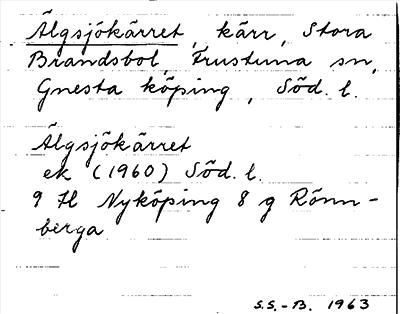 Älgsjökärret, kärr, Stora
Brandsbol, Frustuna sn,
Gnesta köping, Söd. l.
Älgsjökärret
ek (1960) Söd. l.
9 H Nyköping 8 g Rönn-
berga
S.S.-B. 1963